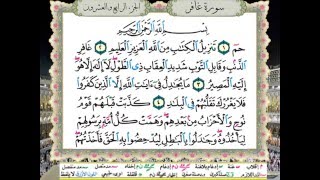 سورة غافر
الجزء الرابع والعشرون
بِسْمِ اللَّهِ الرَّحْمَٰنِ الرَّحِيمِ
حمٓ ١ تَنزِيلُ الْكِتَٰبِ مِنَ اللَّهِ الْعَزِيزِ الْعَلِيمِ ٢ غَافِرِ
الذَّنۢبِ وَقَابِلِ التَّوْبِ شَدِيدِ الْعِقَابِ ذِى الطَّوْلِ لَآ إِلَٰهَ إِلَّا هُوَ
إِلَيْهِ الْمَصِيرُ ٣ مَا يُجَٰدِلُ فِىٓ ءَايَٰتِ اللَّهِ إِلَّا الَّذِينَ كَفَرُوا
فَلَا يَغْرُرْكَ تَقَلُّبُهُمْ فِى الْبِلَٰدِ ٤ كَذَّبَتْ قَبْلَهُمْ قَوْمُ
نُوحٍ وَالْأَحْزَابُ مِنۢ بَعْدِهِمْ وَهَمَّتْ كُلُّ أُمَّةٍۭ بِرَسُولِهِمْ
لِيَأْخُذُوهُ وَجَٰدَلُوا بِالْبَٰطِلِ لِيُدْحِضُوا بِهِ الْحَقَّ فَأَخَذْتُهُمْ